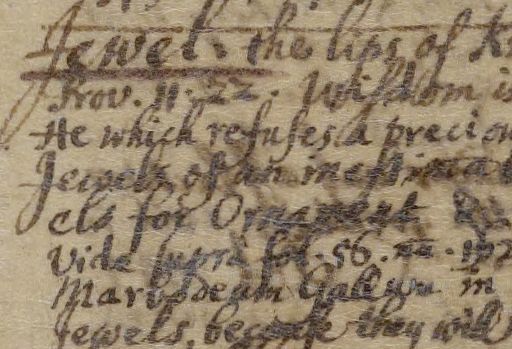 Jewel. the lips of Kn
Prov. 11. 22. Wisdom is
He which refuses a precio
Jewels of an inestima
els for Ornament
Vide supra fol. 56.
Marbodeam Gallum in
Jewels, because they will